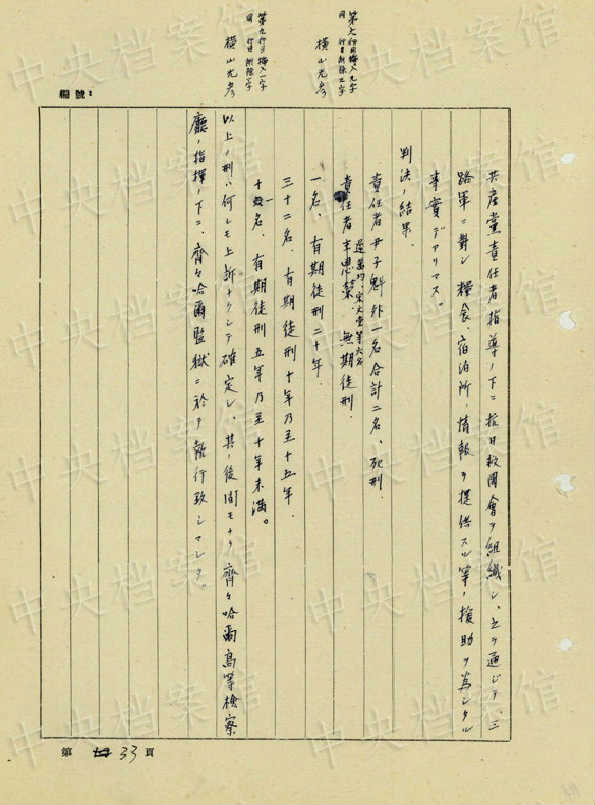 共産党責任者指導ノ下ニ抗日救国會ヲ組織シ、之ヲ通ジテ、三
路軍ニ對シ糧食、宿泊所、情報ヲ提供スル等ノ援助ヲ為シタル
事實デアリマス。
判決ノ結果、
責任者尹子魁外一名合計二名、死刑、
責任者 無期徒刑、
一名、有期徒刑二十年、
三十二名、有期徒刑十年乃至十五年、
十一名、有期徒刑五年乃至十年未満。
以上ノ刑ハ何レモ上訴ナクシテ確定シ、其ノ後間モナク齊々哈爾高等検察
廳ノ指揮ノ下ニ、齊々哈爾監獄ニ於テ執行致シマシタ。
横山光彦
横山光彦
編號:
第 33 頁
中央档案馆